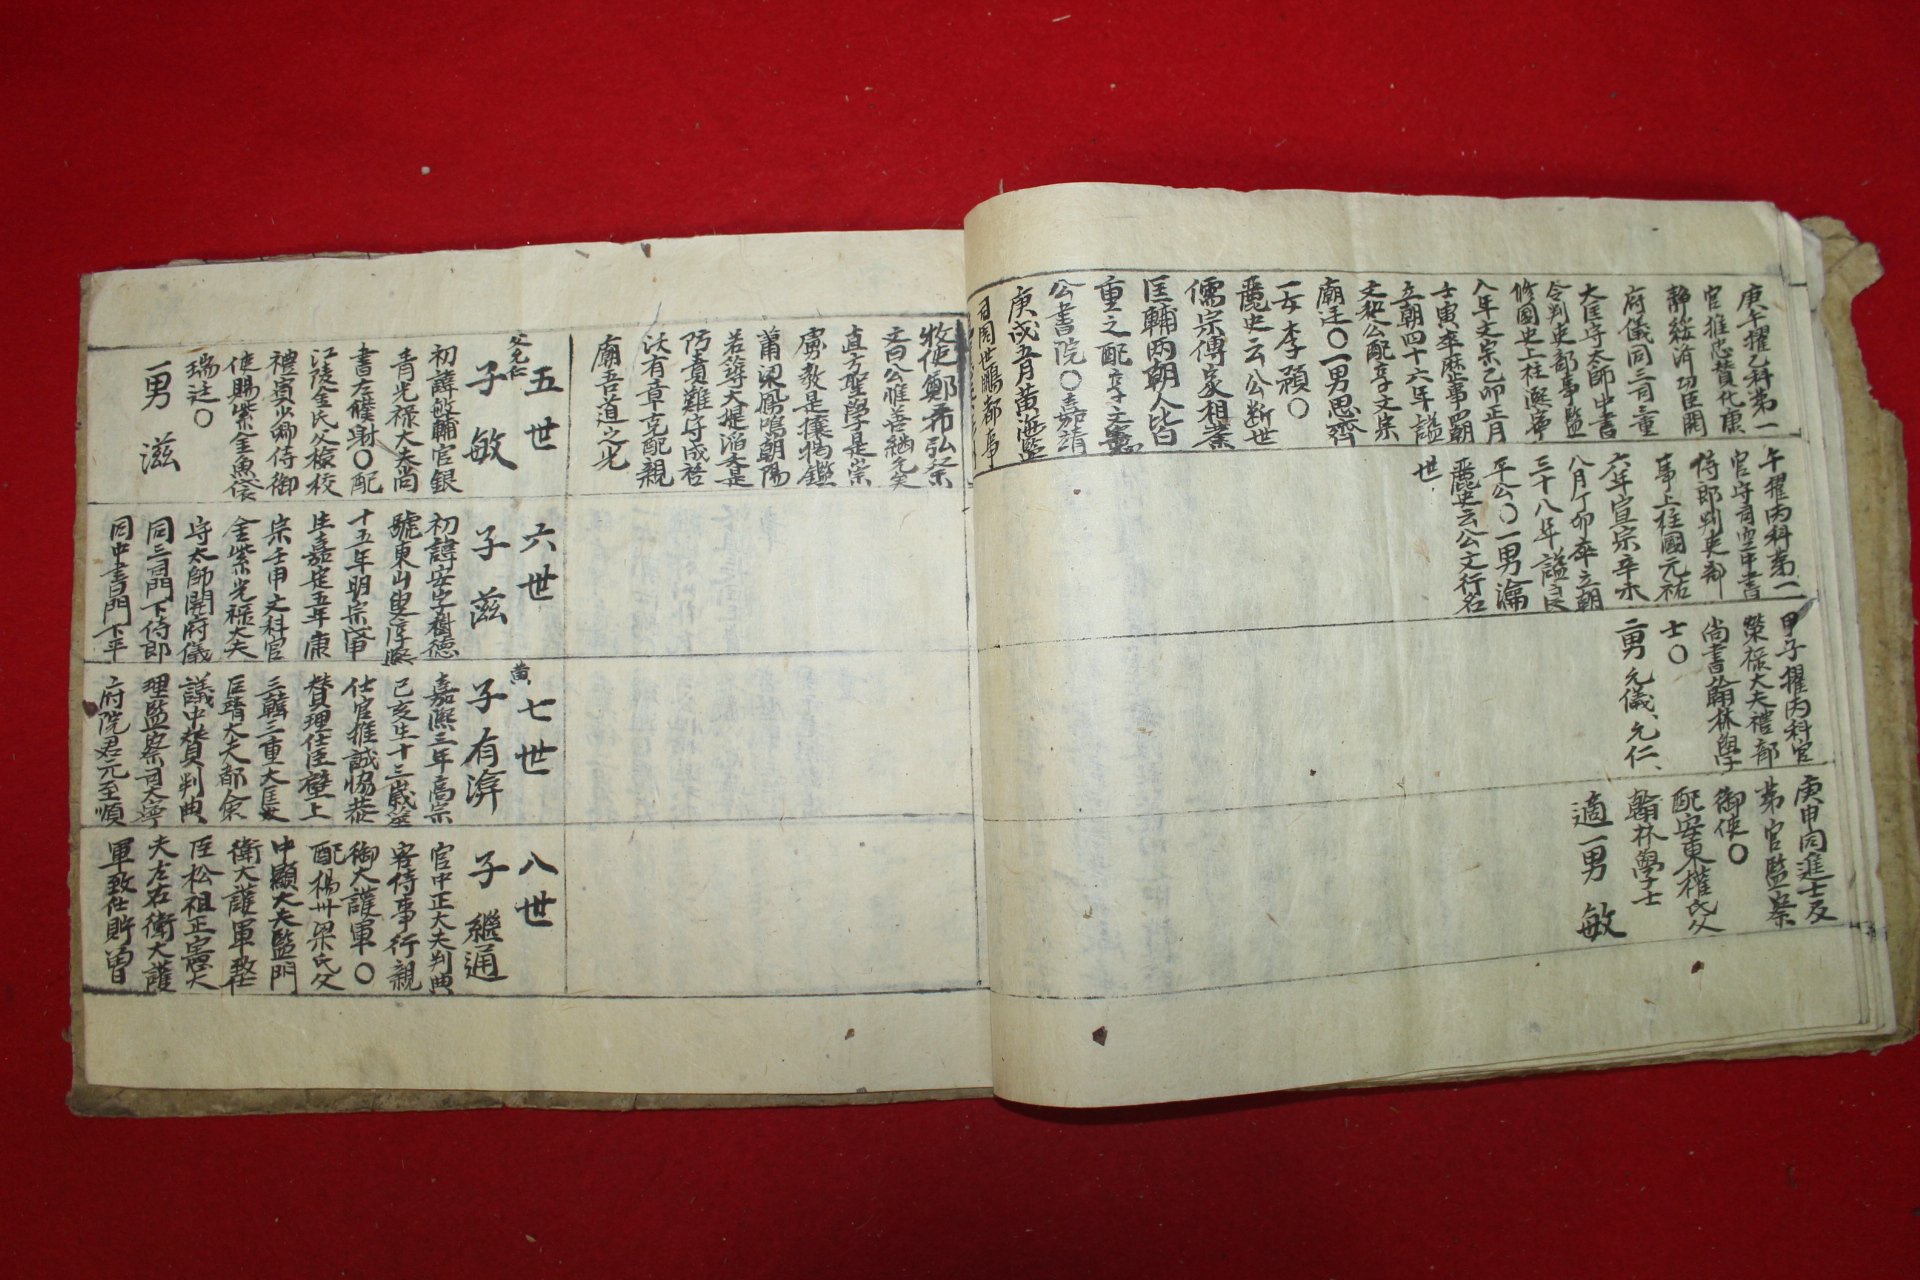 庚午擢乙科第一
官推忠贊化康
靜綏濟功臣開
府儀同三司三重
大匡守太師中書
令判吏部事監
修國史上柱國熙寧
八年文宗乙卯正月
立朝四十六年諡
文和公配享文宗
廟廷○一男思齊
一女李䫨○
麗史云公斷世
儒宗傳家相業
匡輔兩朝人皆曰
重之配享文憲
公書院○嘉靖
庚戌五月黃海監
司周世鵬都事
午擢丙科第一
官守司空中書
侍郎判吏部
事上柱國元祐
六年宣宗辛未
八月丁卯卒立朝
三十八年諡良
平公○一男瀹
麗史云公文行名
世
甲子擢丙科官
榮祿大夫禮部
尚書翰林學
士○
二男元儀、元仁、
庚申同進士及
第官監察
御使○
配安東權氏父
翰林學士
適一男敏
牧使鄭希弘祭
文曰公惟善繼允矣
直方聖學是崇
虜敎是攘物鑑
蕭梁鳳鳴朝陽
若簿大提滔天是
防責難
沃有章克配親
廟吾道之光
五世
父元仁
子敏
初諱敏輔官銀
青光祿大夫尚
書左僕射○配
江陵金氏父檢校
禮賓少卿侍御
使賜紫金魚袋
瑞廷○
一男滋
六世
子滋
初諱安字樹德
號東山叟淳熙
十五年明宗戊申
生嘉定五年康
宗壬申文科官
金紫光祿大夫
守太師開府儀
同三司門下侍郎
同中書門下平
七世
黃
子有渰
嘉熙三年高宗
己亥生十三歲筮
仕官推誠協恭
贊理佐臣壁上
三韓三重大匡
匡靖大夫都僉
議中贊判典
理監察司大寧
府院君元至順
八世
子繼通
官中正大夫判典
客侍事行親
御大護軍○
配楊州梁氏父
中顯大夫監門
衛大護軍致仕
臣松祖正憲大
夫左右衛大護
軍致仕許曾